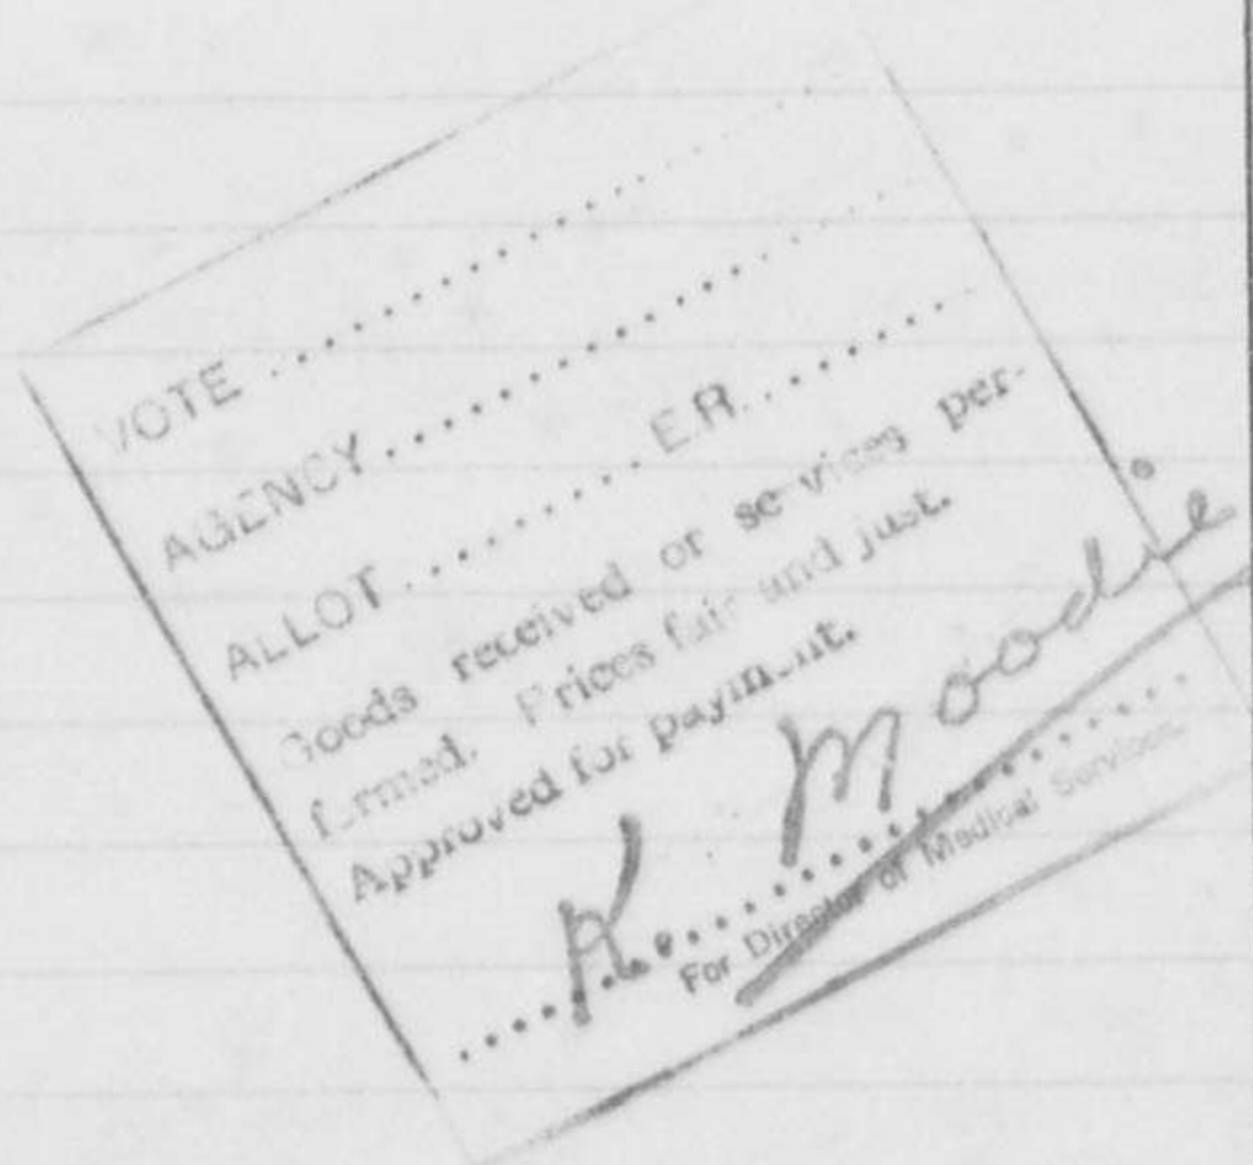 VOTE ..............................
AGENCY ..............................
ALLOT .................. E.R. ..............
Goods received or services per-
formed. Prices fair and just.
Approved for payment.
K. Moodie
For Director of Medical Services.